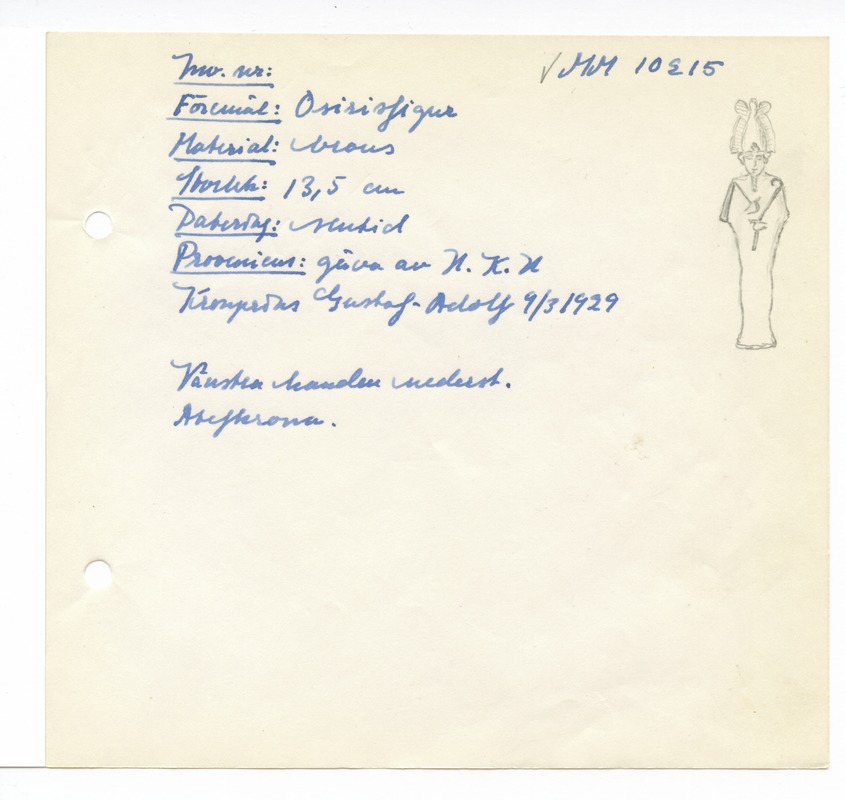 Inv. nr: MM 10215
Föremål: Osirisfigur
Material: brons
Storlek: 13,5 cm
Daterg: sentid
Proveniens: gåva av H. K. H
Kronprins Gustaf-Adolf 9/3 1929
Vänstra handen nederst.
Atefkrona.